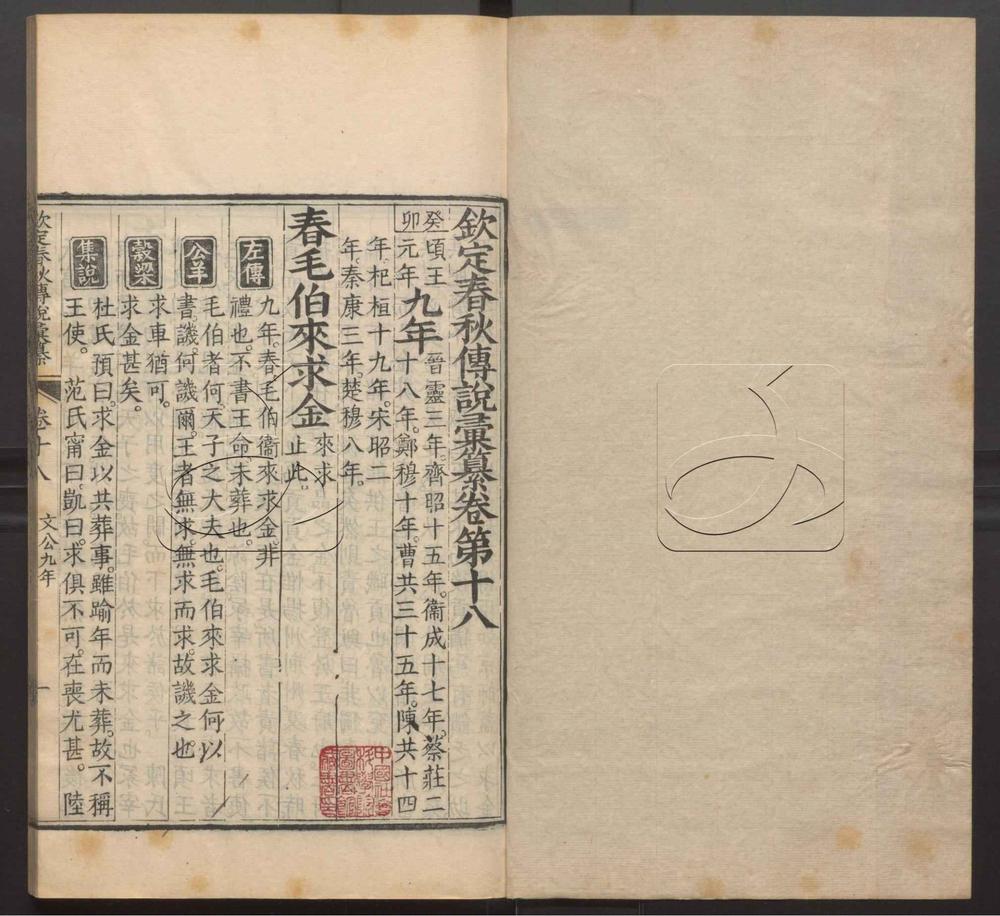 欽定春秋傳說彙纂卷第十八
癸卯
頃王元年
九年
晉靈三年。齊昭十五年。衞成十七年。蔡莊二
十八年。鄭穆十年。曹共三十五年。陳共十四
年。杞桓十九年。宋昭二
年。秦康三年。楚穆八年。
春毛伯來求金
來求
止此。
左傳
九年。春。毛伯衞來求金。非
禮也。不書王命。未葬也。
公羊
毛伯者何。天子之大夫也。毛伯來求金何以
書。譏。何譏爾。王者無求。無求而求。故譏之也。
穀梁
求車猶可。
求金甚矣。
集說
杜氏預曰。求金以共葬事。雖踰年而未葬。故不稱
王使。
范氏甯曰。凱曰。求俱不可。在喪尤甚。
陸
欽定春秋傳說彙纂
卷十八
文公九年
一